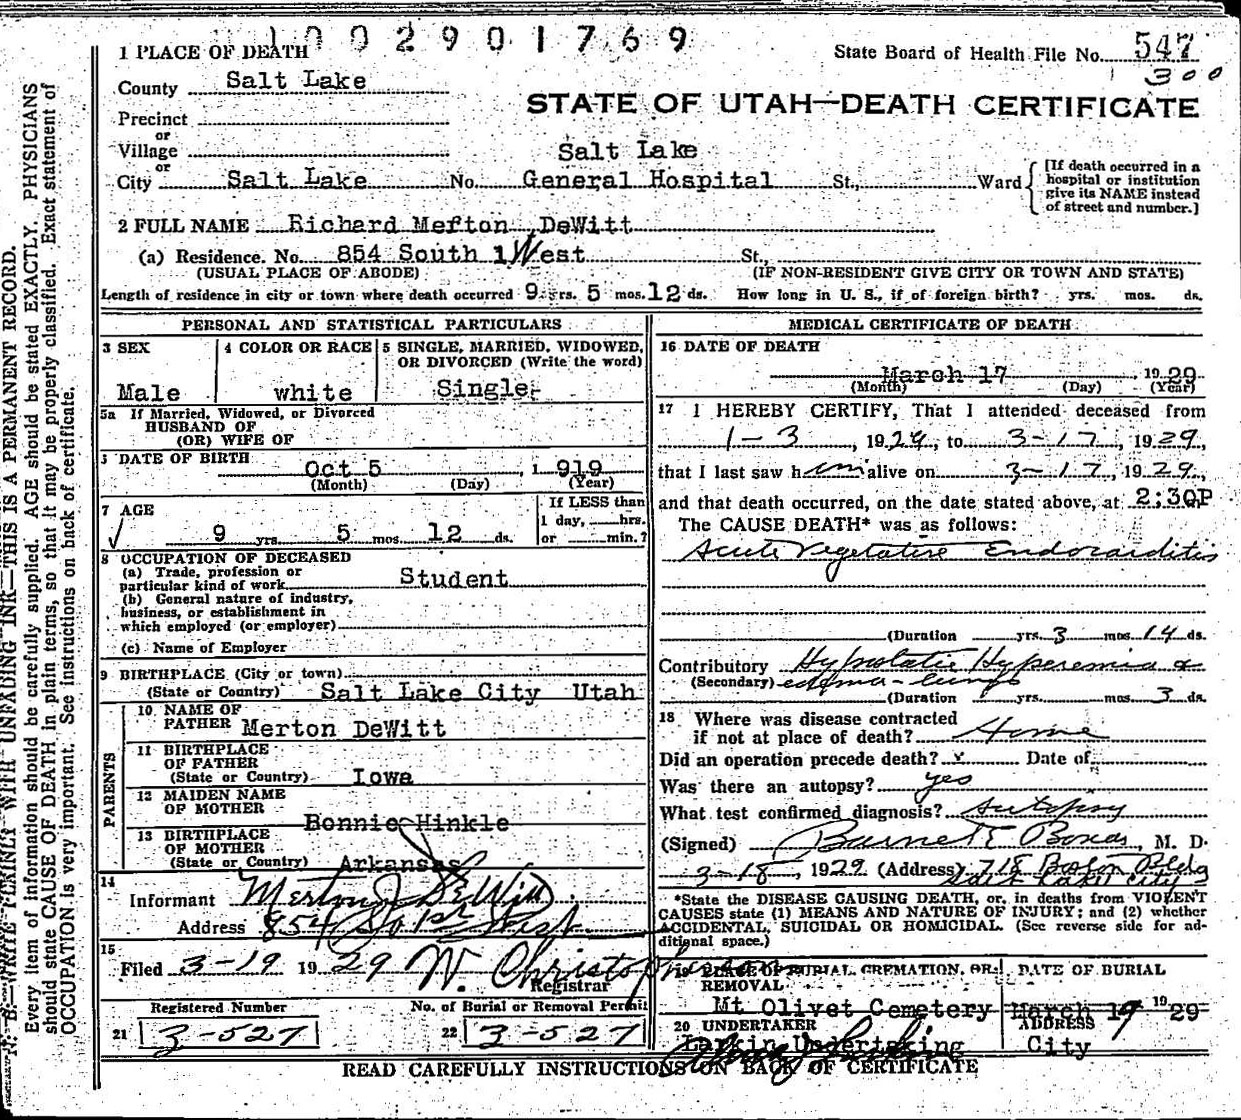 1002901769
1 PLACE OF DEATH
State Board of Health File No. 547
300
County Salt Lake
STATE OF UTAH—DEATH CERTIFICATE
Precinct
or
Village
or
City Salt Lake No. Salt Lake General Hospital St., Ward
[If death occurred in a hospital or institution give its NAME instead of street and number.]
2 FULL NAME Richard Merton DeWitt
(a) Residence. No. 854 South 1 West St.,
(USUAL PLACE OF ABODE) (IF NON-RESIDENT GIVE CITY OR TOWN AND STATE)
Length of residence in city or town where death occurred 9 yrs. 5 mos. 12 ds. How long in U. S., if of foreign birth? yrs. mos. ds.
PERSONAL AND STATISTICAL PARTICULARS
3 SEX
Male
4 COLOR OR RACE
white
5 SINGLE, MARRIED, WIDOWED,
OR DIVORCED (Write the word)
Single
5a If Married, Widowed, or Divorced
HUSBAND OF
(OR) WIFE OF
DATE OF BIRTH
Oct 5, 1919
(Month) (Day) (Year)
7 AGE
9 yrs. 5 mos. 12 ds.
If LESS than
1 day, hrs.
or min.?
8 OCCUPATION OF DECEASED
(a) Trade, profession or
particular kind of work Student
(b) General nature of industry,
business, or establishment in
which employed (or employer)
(c) Name of Employer
9 BIRTHPLACE (City or town)
(State or Country) Salt Lake City Utah
PARENTS
10 NAME OF
FATHER Merton DeWitt
11 BIRTHPLACE
OF FATHER
(State or Country) Iowa
12 MAIDEN NAME
OF MOTHER
Bonnie Hinkle
13 BIRTHPLACE
OF MOTHER
(State or Country) Arkansas
14
Informant Merton J DeWitt
Address 854 So 1st West
15
Filed 3-19 1929 W. Christopherson
Registrar
Registered Number No. of Burial or Removal Permit
21 3-527 22 3-527
MEDICAL CERTIFICATE OF DEATH
16 DATE OF DEATH
March 17 1929
(Month) (Day) (Year)
17 I HEREBY CERTIFY, That I attended deceased from
1-3, 1929, to 3-17, 1929,
that I last saw him alive on 3-17, 1929,
and that death occurred, on the date stated above, at 2:30P
The CAUSE DEATH* was as follows:
Acute Vegetative Endocarditis
(Duration yrs. 3 mos. 14 ds.
Contributory Hypostatic Hyperemia &
(Secondary) edema-lungs
(Duration yrs. mos. 3 ds.
18 Where was disease contracted
if not at place of death? Home
Did an operation precede death? x Date of
Was there an autopsy? yes
What test confirmed diagnosis? Autopsy
(Signed) M. D.
3-18, 1929 (Address) 718 Boston Bldg
Salt Lake City
*State the DISEASE CAUSING DEATH, or, in deaths from VIOLENT
CAUSES state (1) MEANS AND NATURE OF INJURY; and (2) whether
ACCIDENTAL, SUICIDAL OR HOMICIDAL. (See reverse side for ad-
ditional space.)
19 PLACE OF BURIAL, CREMATION, OR
REMOVAL
Mt Olivet Cemetery
DATE OF BURIAL
March 19 1929
20 UNDERTAKER
Larkin Undertaking
ADDRESS
City
READ CAREFULLY INSTRUCTIONS ON BACK OF CERTIFICATE
N. B.—WRITE PLAINLY WITH UNFADING INK—THIS IS A PERMANENT RECORD.
Every item of information should be carefully supplied. AGE should be stated EXACTLY. PHYSICIANS
should state CAUSE OF DEATH in plain terms, so that it may be properly classified. Exact statement of
OCCUPATION is very important. See instructions on back of certificate.